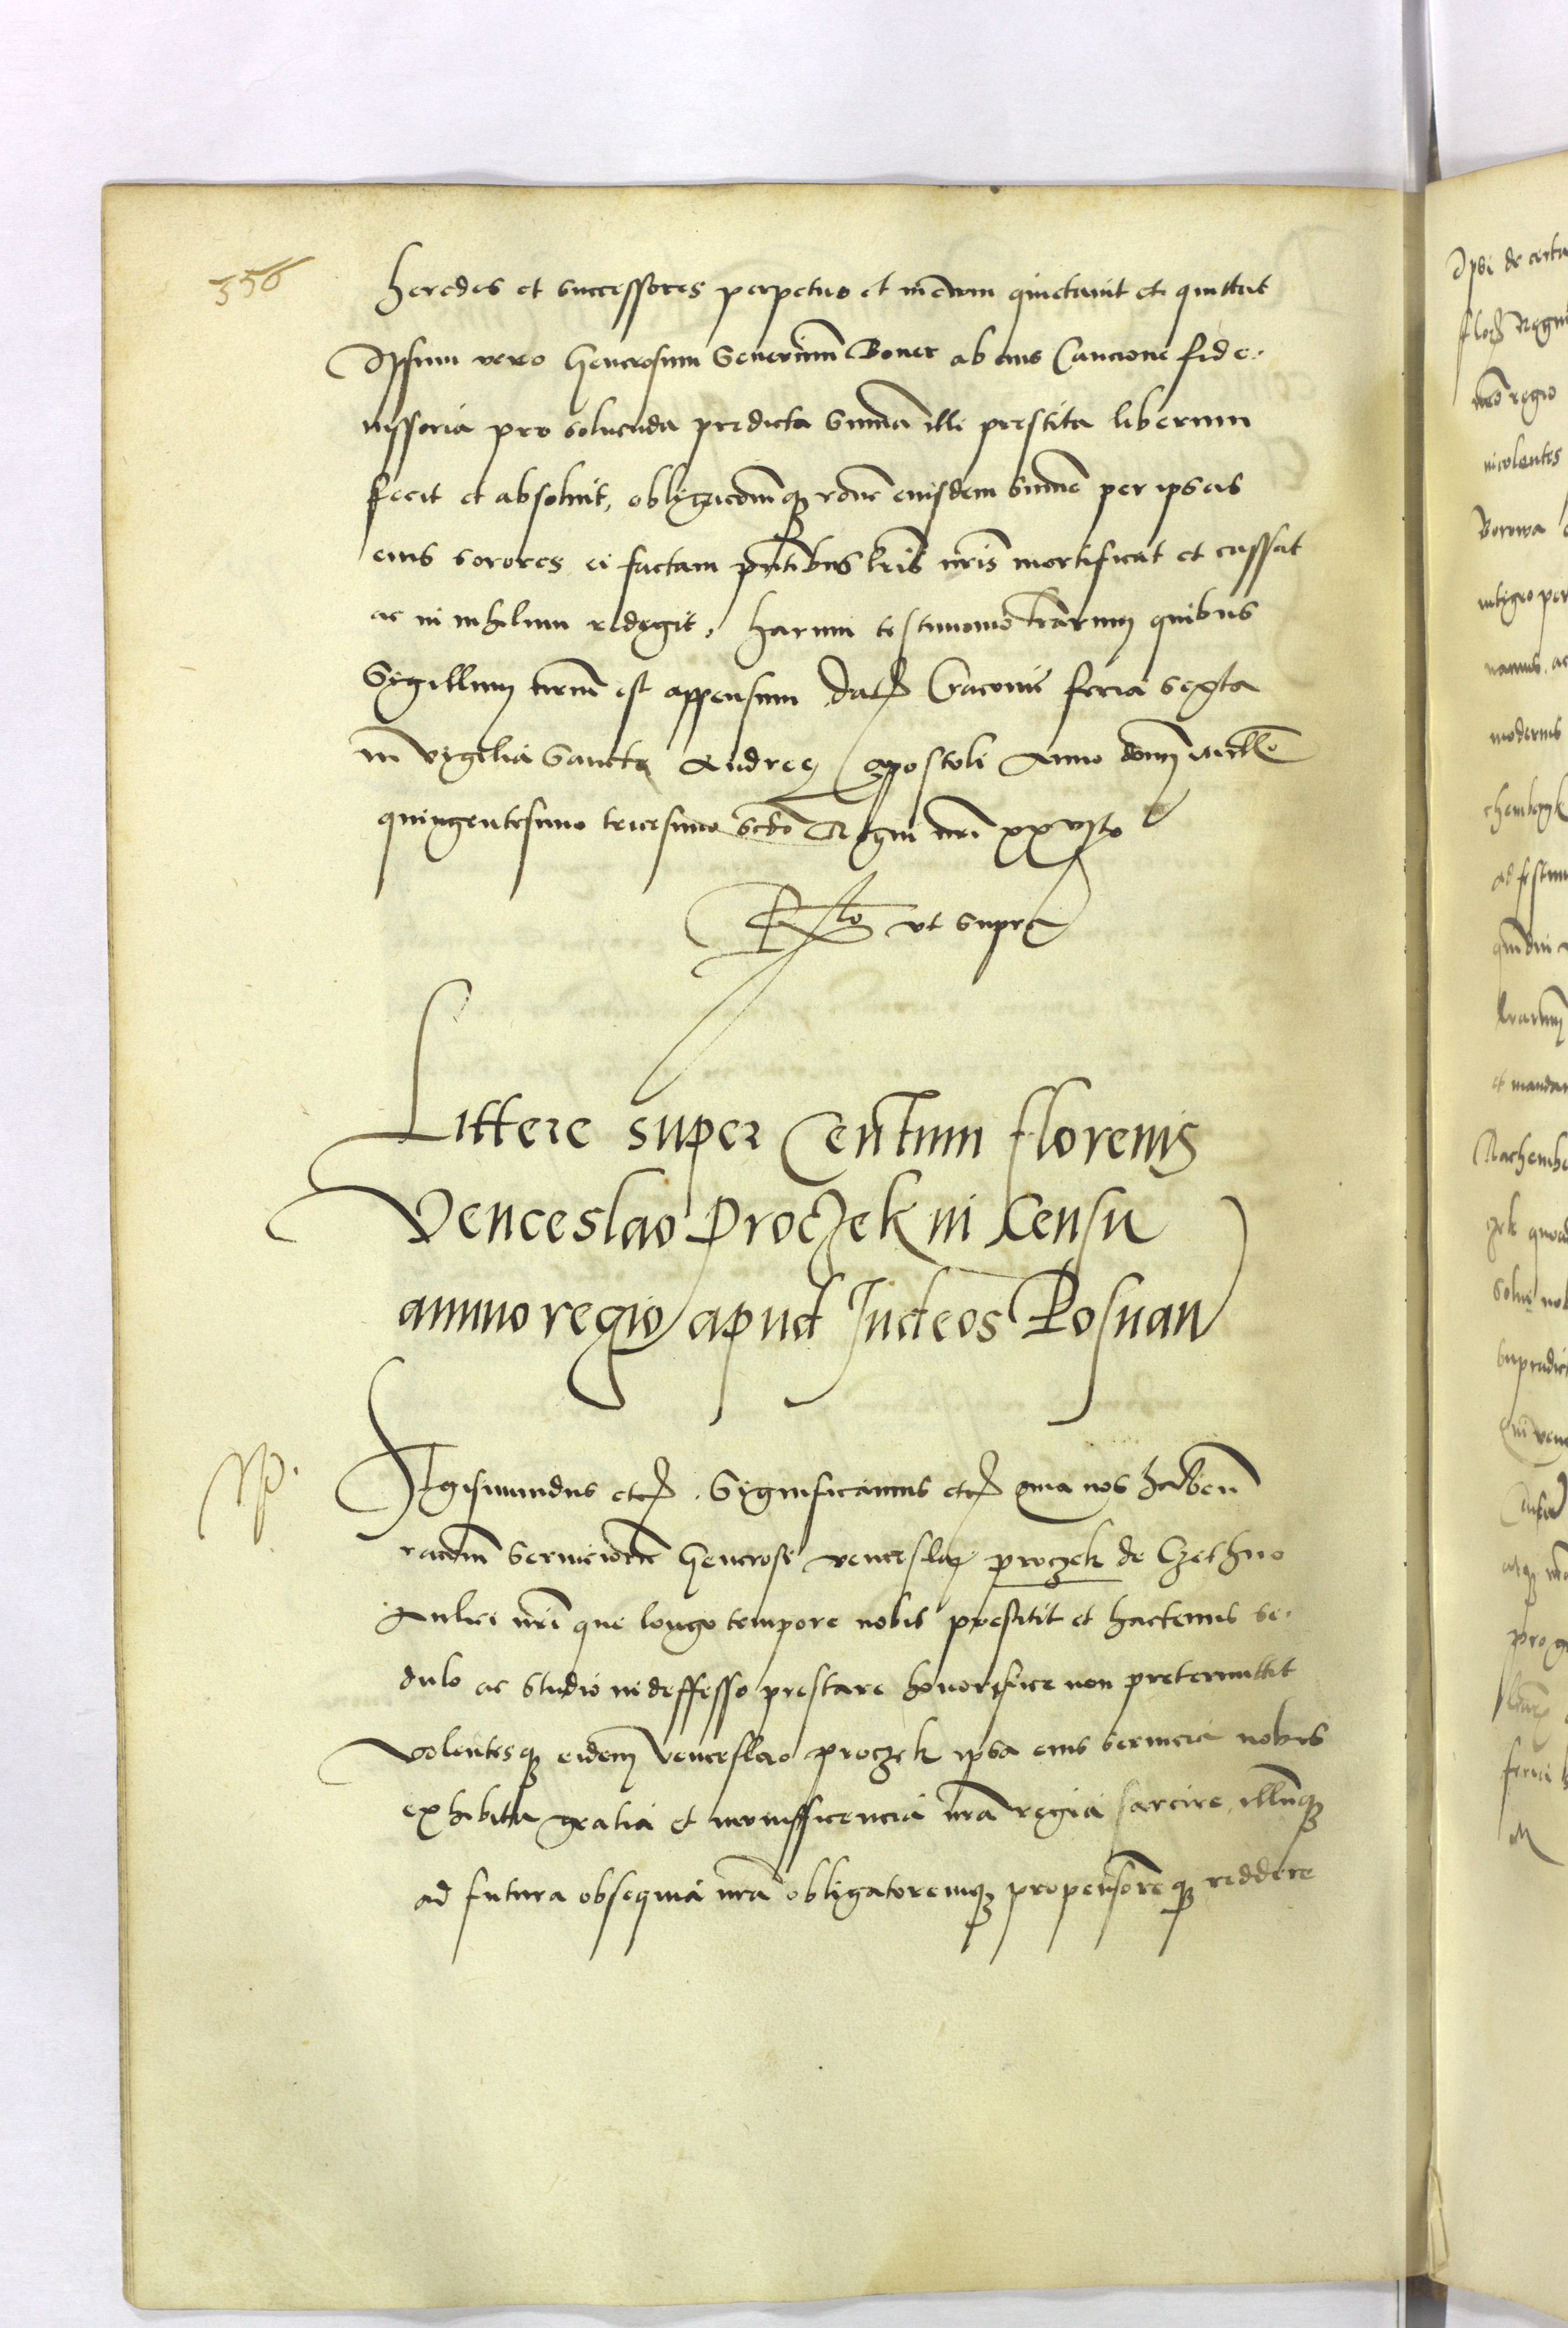 356
heredes et successores perpetuo et in ewm quietavit et quittat
Ipsum vero Generosum Severinum Boner ab eius Caucione fide-
iussoria pro solvenda predicta summa illi prestita liberum
fecit et absolvit, obligacōmq racōne eiusdem summe per ipsas
eius sorores ei factam pntibus lris nris mortificat et cassat
ac in nihilum redegit, harum testimonio lrarum quibus
Sigillum nrum est appensum dat Cracovie feria sexta
in vigilia Sancti Andree Apostoli Anno domi Mille
quingentesimo tricesimo scdo Regni nri xxvjto
Rlo vt supra
Littere super Centum florenis
Venceslao Proczek in Censu
annuo regio apud Judeos Posnan
Sigismundus etc. Significamus etc quia nos haben
racōm serviciorū Generosi venceslai proczek de Czethno
Aulici nri que longo tempore nobis prestitit et hactenus se-
dulo ac studio indeffesso prestare honorifice non pretermittit
volentesq eidem Venceslao proczek ipsa eius servicia nobis
exhibita gratia et munifficencia nra regia sarcire, illūq
ad futura obsequia nra obligatoremq propensoreq reddere
Ipsi de certa
flor Regni
nro regio
nicolentes
Borowa
integro per
modernis
ad festum
lrarum
et mandam
zek quod
supradic
pro